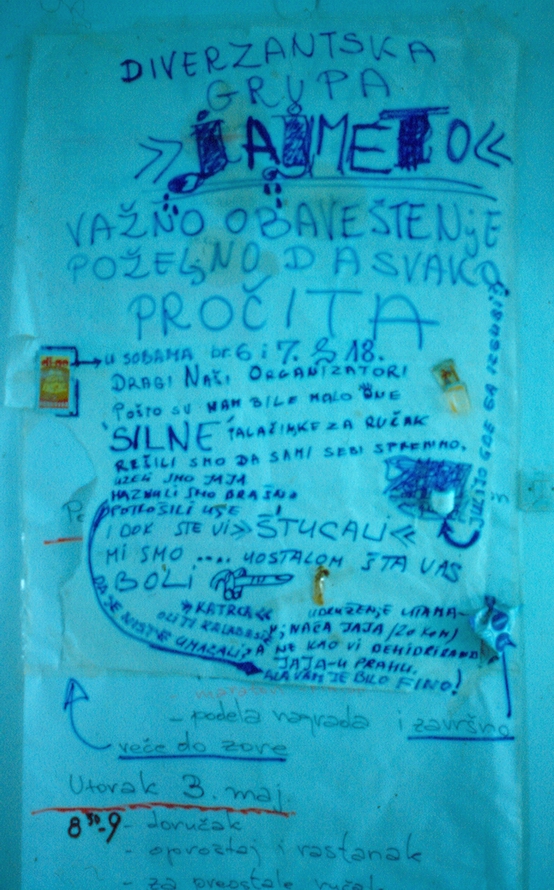 DIVERZANTSKA
GRUPA
»JAJMETO«
VAŽNO OBAVEŠTENjE
POŽELjNO DA SVAKO
PROČITA
U SOBAMA br. 6 i 7. 18.
DRAGI NAŠI ORGANIZATORI
POŠTO SU NAM BILE MALO ONE
'SILNE' PALAČINKE ZA RUČAK
REŠILI SMO DA SAMI SEBI SPREMIMO.
UZELI SMO JAJA
MAZNULI SMO BRAŠNO
POTROŠILI ULJE
I DOK STE VI »ŠTUCALI«
MI SMO .... UOSTALOM ŠTA VAS
BOLI
»KATRCA«
UDRUŽENJE UTAMA-
NjIVAČA JAJA (20 KOM)
A NE KAO VI DEHIDRIRANA
JAJA-U PRAHU.
ALA VAM JE BILO FINO!
DA JE NISTE UMAČALI,
- podela nagrada i završno
veče do zore
Utorak 3. maj
8³⁰-9 - doručak
- oproštaj i rastanak
- za preostale ručak